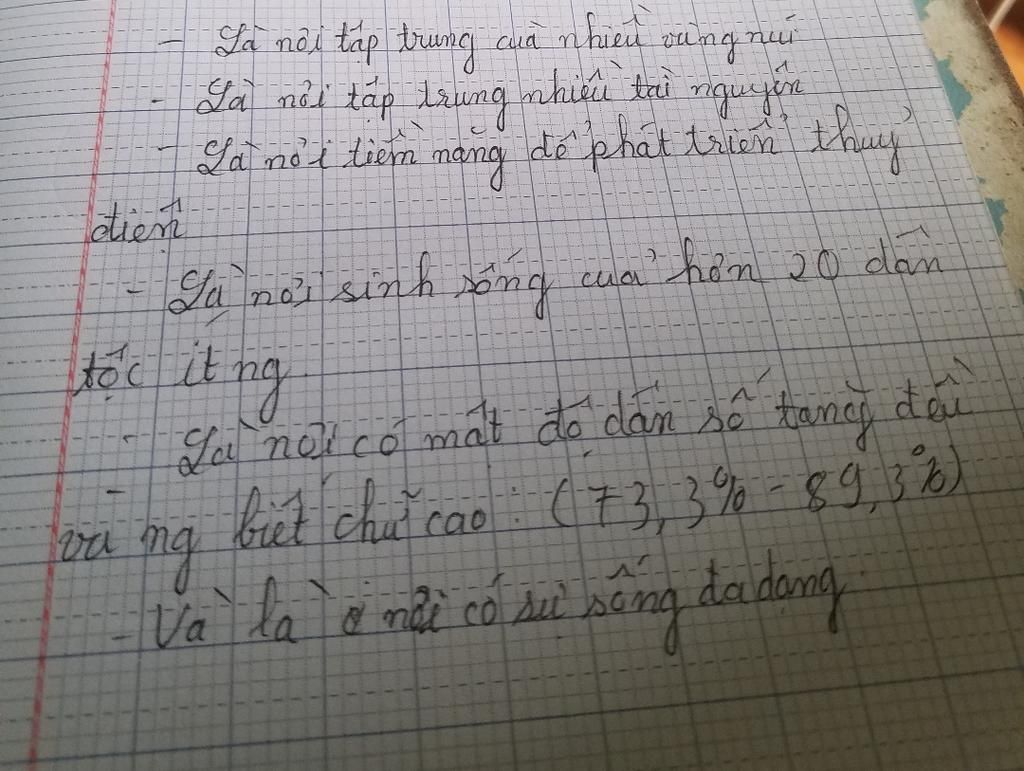 - Là nơi tập trung của nhiều vùng núi
- Là nơi tập trung nhiều tài nguyên
- Là nơi tiềm năng để phát triển thuỷ
điện
- Là nơi sinh sống của hơn 20 dân
tộc ít ng
- Là nơi có mật độ dân số tăng đều
và ng biết chữ cao: (73,3% - 89,3%)
- Và là nơi có sự sống đa dạng